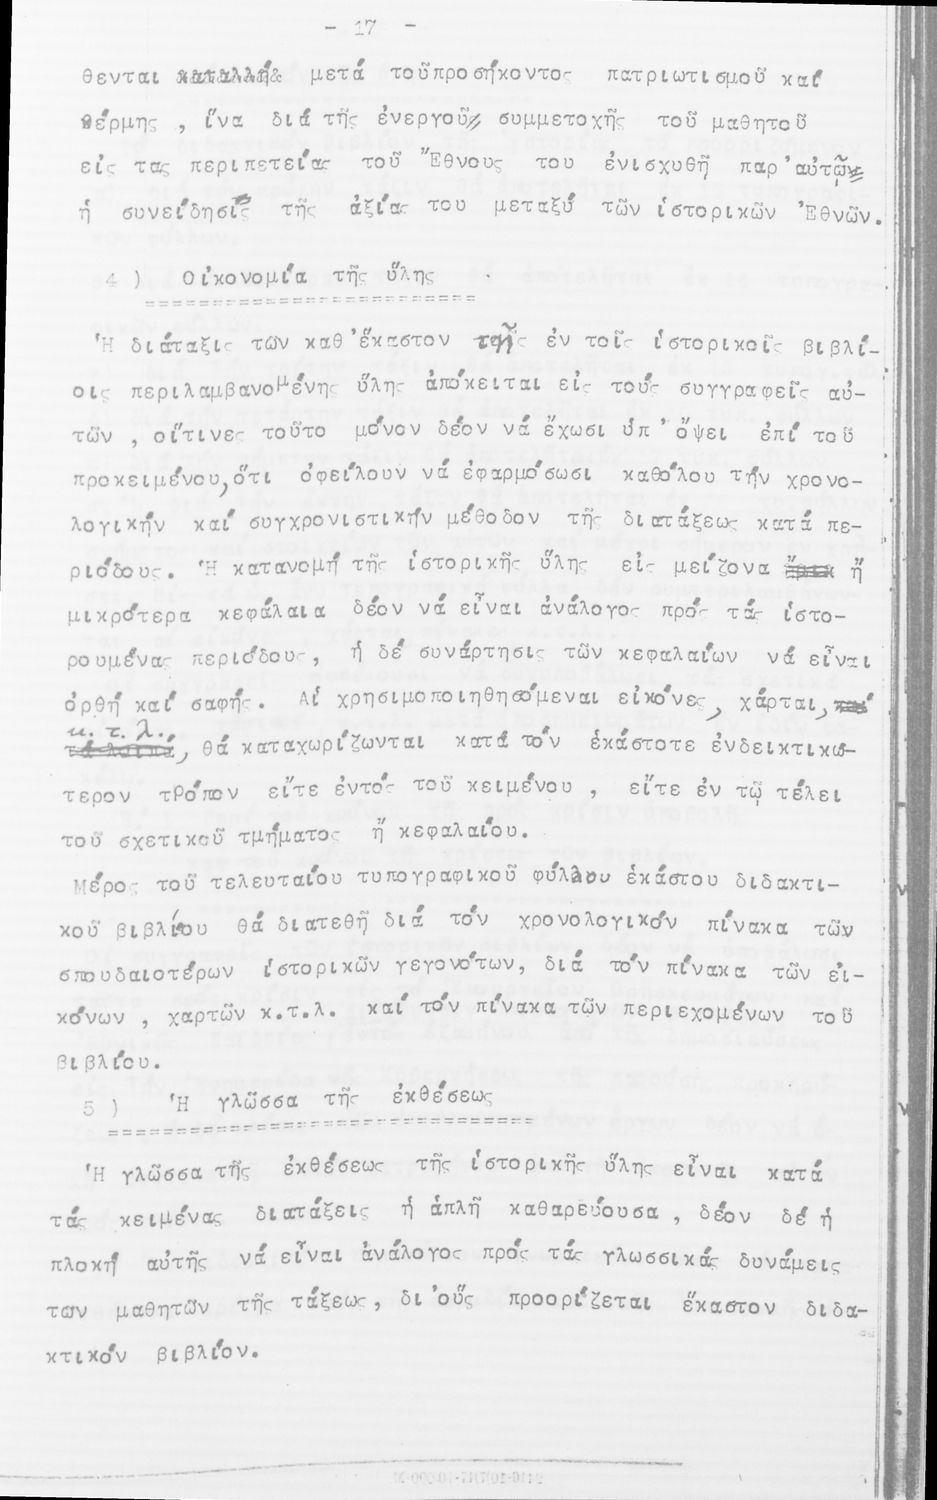 - 17 -
θενται μετά τοῦπροσήκοντος πατριωτισμοῦ καί
θέρμης , ἵνα διά τῆς ἐνεργοῦς συμμετοχῆς τοῦ μαθητοῦ
εἰς τας περιπετείας τοῦ Ἔθνους του ἐνισχυθῆ παρ'αὐτῷ
ἡ συνείδησις τῆς ἀξίας του μεταξύ τῶν ἱστορικῶν Ἐθνῶν.
4 ) Οἰκονομία τῆς ὕλης
Ἡ διάταξις τῶν καθ'ἕκαστον τῆς ἐν τοῖς ἱστορικοῖς βιβλί-
οις περιλαμβανομένης ὕλης ἀπόκειται εἰς τούς συγγραφεῖς αὐ-
τῶν , οἵτινες τοῦτο μόνον δέον νά ἔχωσι ὑπ' ὄψει ἐπί τοῦ
προκειμένου,ὅτι ὀφείλουν νά ἐφαρμόσωσι καθόλου τήν χρονο-
λογικήν καί συγχρονιστικήν μέθοδον τῆς διατάξεως κατά πε-
ριόδους. Ἡ κατανομή τῆς ἱστορικῆς ὕλης εἰς μείζονα ἤ
μικρότερα κεφάλαια δέον νά εἶναι ἀνάλογος πρός τάς ἱστο-
ρουμένας περιόδους, ἡ δέ συνάρτησις τῶν κεφαλαίων νά εἶναι
ὀρθή καί σαφής. Αἱ χρησιμοποιηθησόμεναι εἰκόνες, χάρται, καί
κ. τ. λ.
τά λοιπά, θά καταχωρίζωνται κατά τόν ἑκάστοτε ἐνδεικτικώ-
τερον τρόπον εἴτε ἐντός τοῦ κειμένου , εἴτε ἐν τῷ τέλει
τοῦ σχετικοῦ τμήματος ἤ κεφαλαίου.
Μέρος τοῦ τελευταίου τυπογραφικοῦ φύλλου ἑκάστου διδακτι-
κοῦ βιβλίου θά διατεθῆ διά τόν χρονολογικόν πίνακα τῶν
σπουδαιοτέρων ἱστορικῶν γεγονότων, διά τόν πίνακα τῶν εἰ-
κόνων , χαρτῶν κ.τ.λ. καί τόν πίνακα τῶν περιεχομένων τοῦ
βιβλίου.
5 ) Ἡ γλῶσσα τῆς ἐκθέσεως
Ἡ γλῶσσα τῆς ἐκθέσεως τῆς ἱστορικῆς ὕλης εἶναι κατά
τάς κειμένας διατάξεις ἡ ἁπλῆ καθαρεύουσα , δέον δέ ἡ
πλοκή αὐτῆς νά εἶναι ἀνάλογος πρός τάς γλωσσικάς δυνάμεις
των μαθητῶν τῆς τάξεως, δι'οὕς προορίζεται ἕκαστον διδα-
κτικόν βιβλίον.